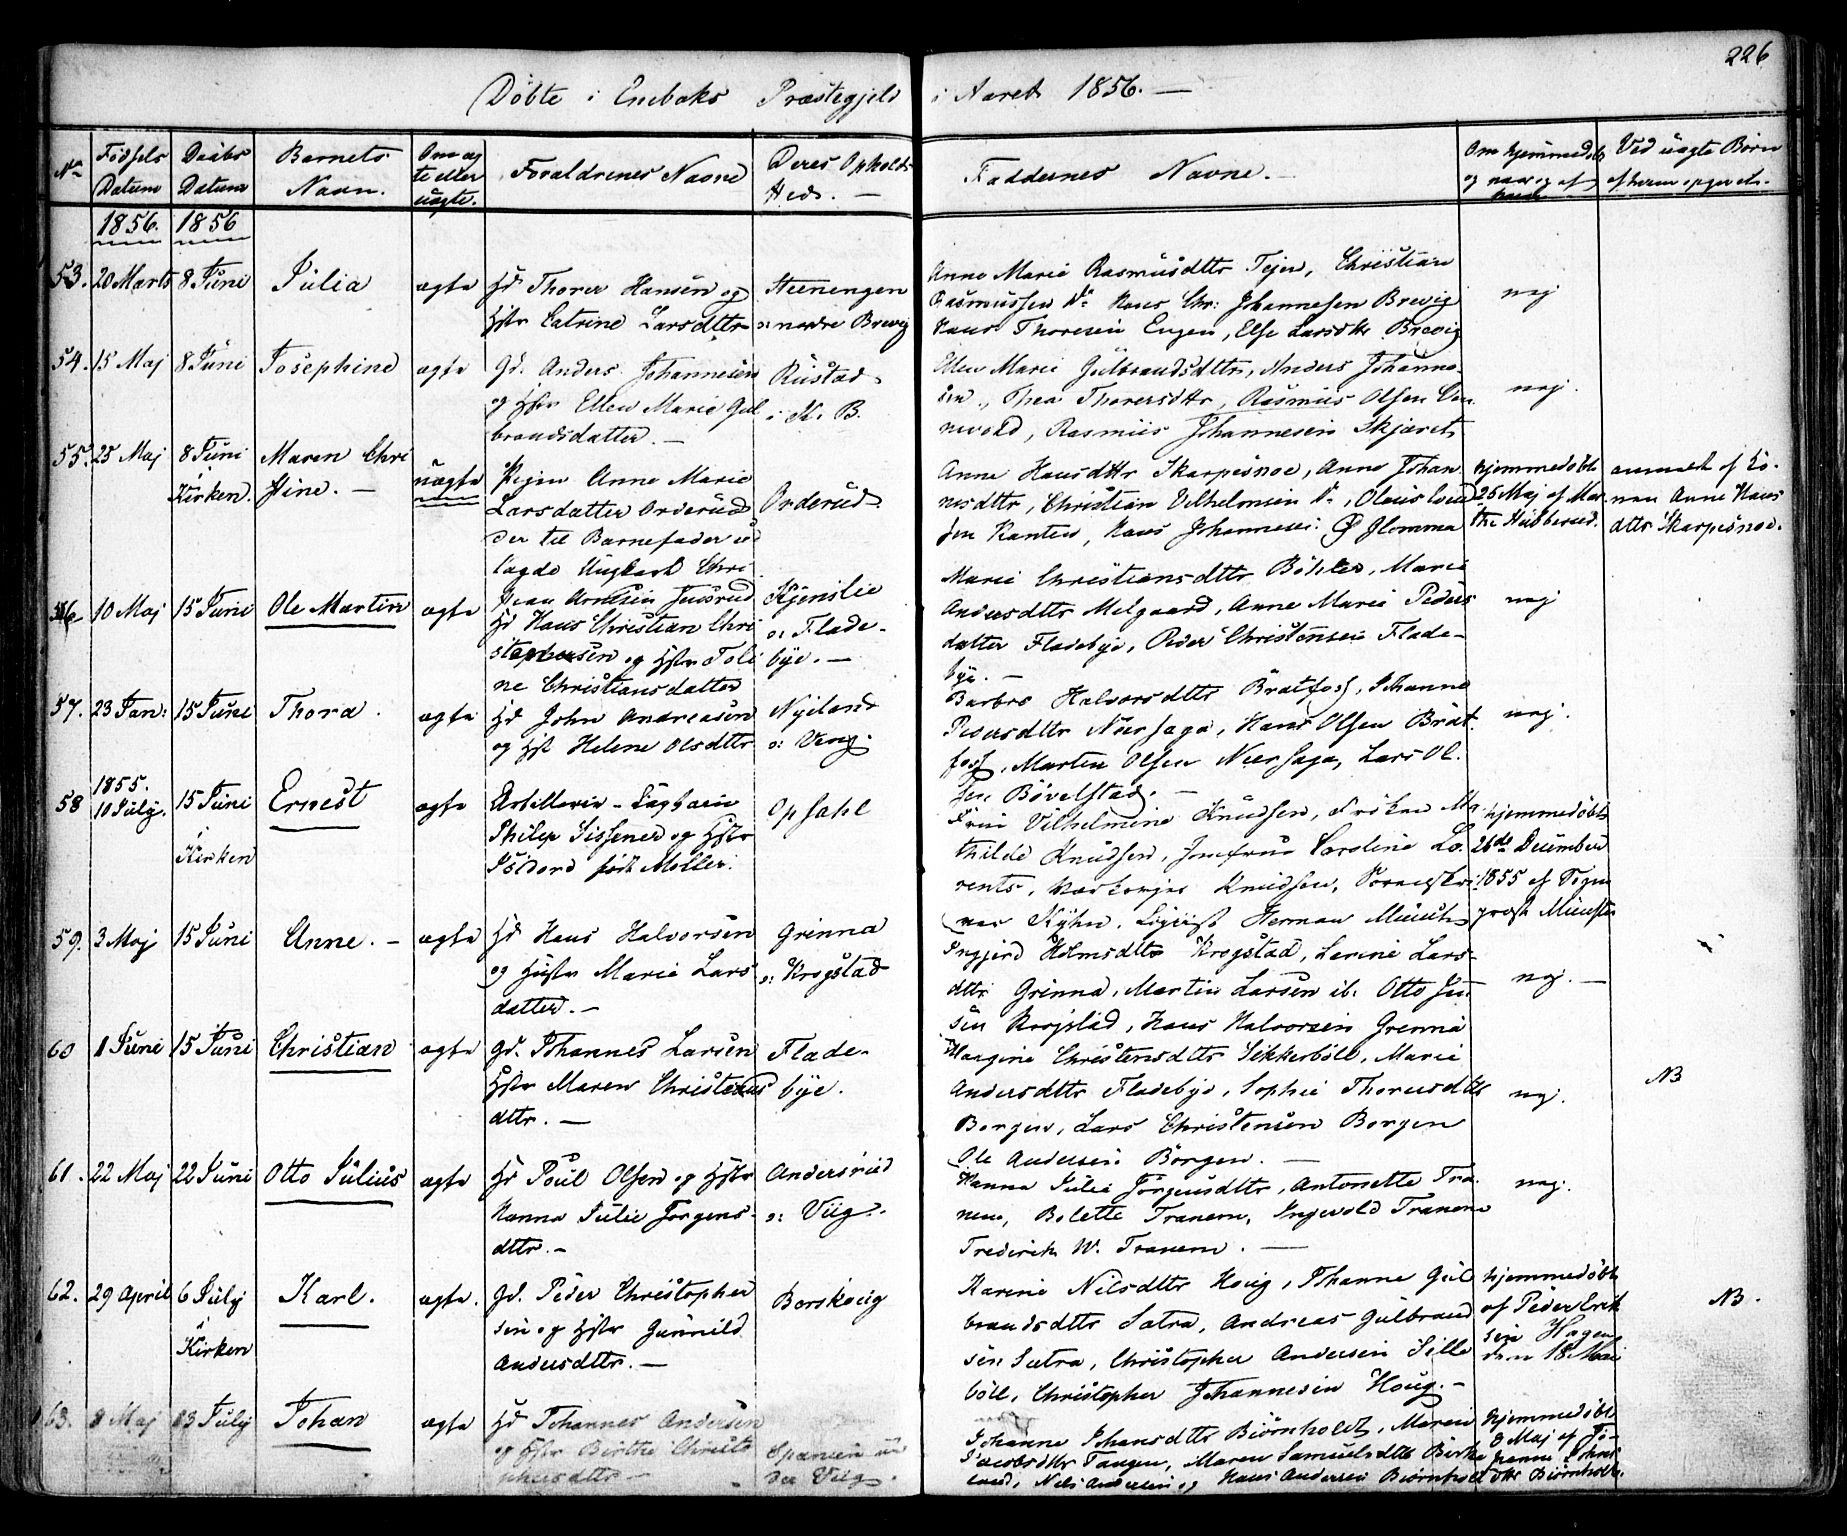 226
Döbte i Enebaks Præstegjeld i Aaret 1856. —
No
Födsels Datum
Daabs Datum
Barnets Navn.
Om ægte eller uægte.
Forældrenes Navne
Deres Opholds Sted. —
Faddernes Navne. —
Om hjemmedöbt og naar og af hvem
Ved uægte Börn
1856. 1856
53. 20 Marts 8 Juni Julia ægte
Hd Thorer Hansen og
Hstr Catrine Larsdttr
Stenengen
o: nordre Brevig
Anne Marie Rasmusdttr Tejen, Christian
Rasmussen do Hans Chr: Johannesen Brevig
Hans Thoresen Engen, Else Larsdttr Brevig
nej
54. 15 Maj 8 Juni Josephine ægte
Gd. Anders Johannesen
og Hstr Ellen Marie Gul
brandsdatter. —
Rustad
i K. B.
Ellen Marie Gulbrandsdttr, Anders Johanne-
sen, Thea Thorersdttr, Rasmus Olsen
Rasmus Johannesen Skjæret
nej.
55. 25 Maj 8 Juni i Kirken. Maren Chri
stine. — uægte
Pigen Anne Marie
Larsdatter Orderud
der til Barnefader ud
lagde Ungkarl Chri
stian Arnesen
Orderud
Anne Hansdttr Skarpesnoe, Anne Johan
nesdttr, Christian Vilhelmsen do, Olaus
sen Kanten, Hans Johannesen Glomma
hjemmedöbt
25 Maj af Mar
the Hubberud.
anmeldt af Ko-
nen Anne Hans
dttr Skarpesnoe.
56. 10 Maj 15 Juni Ole Martin ægte
Hd Hans Christian Chri
stophersen og Hstr Joli
ne Christiansdatter
Kjenslie
o: Flade-
bye. —
Marie Christiansdttr Böhler, Marie
Andersdttr Melgaard, Anne Marie Peders
datter Fladebye, Peder Christensen Flade-
bye. —
nej
57. 23 Jan: 15 Juni Thora. ægte
Hd John Andreasen
og Hst Helene Olsdttr
Nyeland
o: Veng.
Barbro Halvorsdttr Bratfoss, Johanne
Pedersdttr Nær Saga, Hans Olsen Brat
foss, Marten Olsen Nær Saga, Lars Ol
sen Bövelstad. —
nej.
58 1855. 10 July. 15 Juni i Kirken Ernest ægte
Artillerie-
Philip Sissener og Hstr
födt Möller.
Opsahl
Fru Vilhelmine Knudsen, Fröken Ma
thilde Knudsen, Jomfrue Caroline Lo
rents, Knudsen,
Kÿhn, Herman Munch
hjemmedöbt
26de December
1855 af Sogne
præst Münster
59. 3 Maj 15 Juni Anne. — ægte
Hd Hans Halvorsen
og Hustr Marie Lars
datter. —
Grinna
o: Krogstad
Ingjerd Holmsdttr Krogstad, Lars-
dttr Grinna, Martin Larsen ib: Otto Jen
sen Krogstad, Hans Halvorsen Grinna
nej. —
60 1 Juni 15 Juni Christian ægte
Gd. Johannes Larsen
Hstr Maren Christens
dttr. —
Flade-
bye.
Christensdttr Sikkeböll, Marie
Andersdttr Fladebye, Sophie Thorersdttr
Borgen, Lars Christensen Borgen
Ole Andersen Borgen. —
nej.
NB
61. 22 Maj 22 Juni Otto Julius ægte
Hd Poul Olsen og Hstr
Hanna Julie Jörgens-
dttr. —
Andersrud
o: Viig.
Hanna Julie Jörgensdttr, Antonette Tra-
nem, Bolette Tranem, Ingevold Tranem
Frederik W. Tranem. —
nej.
62. 29 April 6 July i Kirken Karl. ægte.
Gd. Peder Christopher
sen og Hstr Gunnild
Andersdttr. —
Borskoug
Karine Nilsdttr Houg, Johanne Gul
brandsdttr Sætra, Andreas Gulbrand
sen Sætra, Christopher Andersen Sille
böll, Christopher Johannesen Houg. —
hjemmedöbt
af Peder Erik
sen Hagen
den 18 Mai
NB.
63. 8 Maj 13 July Johan ægte
Hd Johannes Andersen
og Hstr Birthe Christo
phersdttr —
Spanien un
der Viig.
Johanne Johansdttr Biörnholdt, Maren
Jacobsdttr Tangen, Maren Samuelsdttr Birke
lund, Nils Andersen og Hans Andersen Biörnholdt
hjemmedöbt
8 Maj af Jo-
hanne Johans
dttr Biörnholdt.